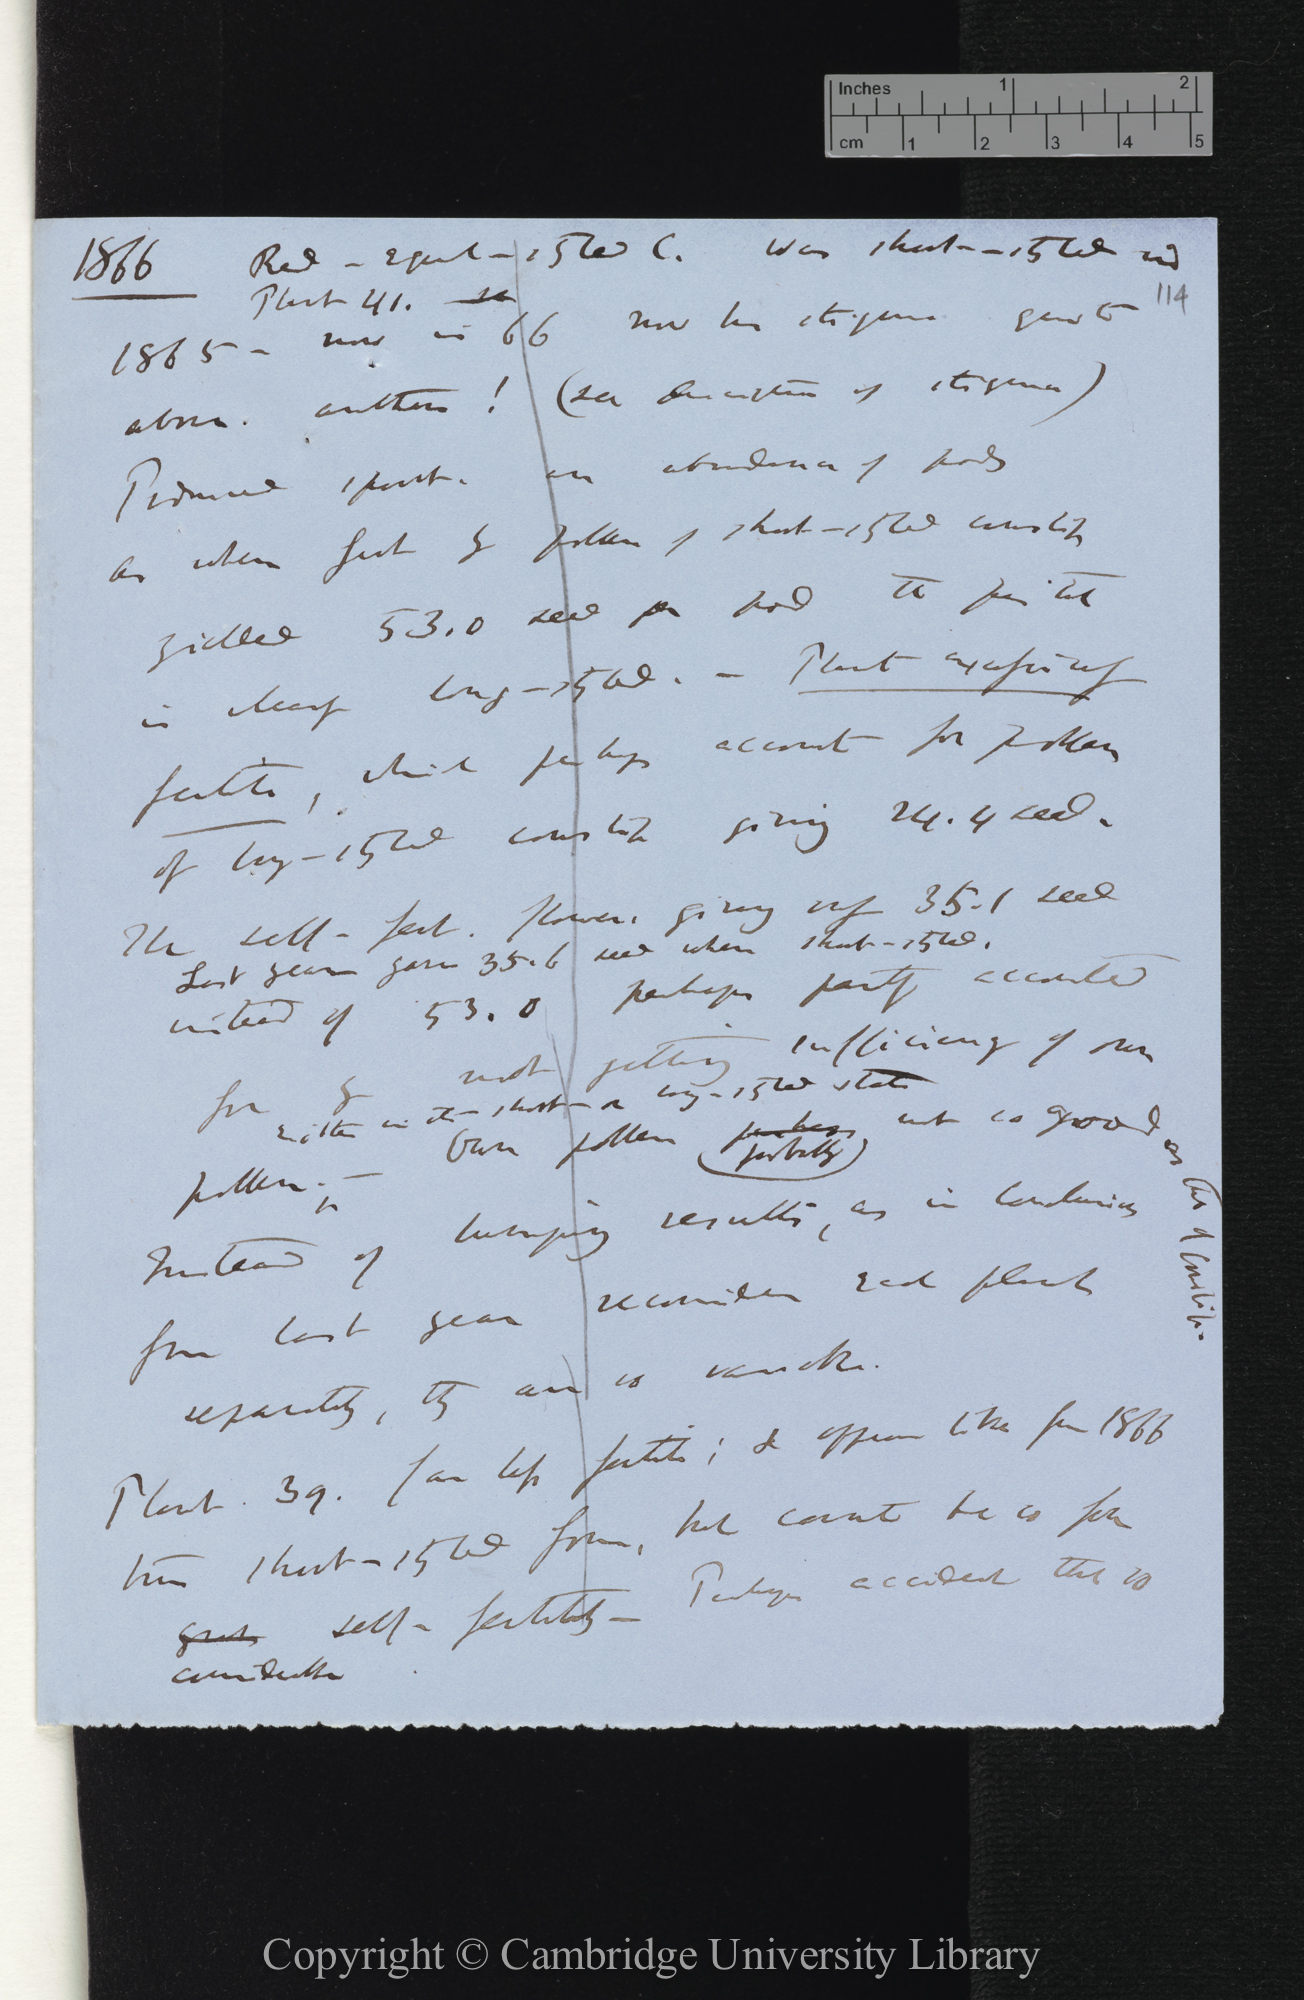 Inches 1 2
cm 1 2 3 4 5
1866 Red - equal-styled C. was short-styled in
114
Plant 41.
1865 - now in 66 now has stigma quite
above anthers ! (see description of stigma)
Produced spont. an abundance of pods
as when fert by pollen of short-styled cowslip
yielded 53.0 seed per pod the pistil
is clearly long-styled. - Plant excessively
fertile, which perhaps accounts for pollen
of long-styled cowslip giving 24.4 seed.
The self-fert. flowers giving only 35.1 seed
Last year gave 35.6 seed when short-styled.
instead of 53.0 perhaps partly accounted
for by not getting sufficiency of own
either in the short- or long-styled state
pollen. - Own pollen perhaps (probably) not so good as that of Cowslip.
Instead of lumping results, as in conclusions
from last year reconsider each plant
separately, they are so variable.
Plant 39. far less fertile; & appears like from 1866
true short-styled form, but cannot be so from
great self-fertility - Perhaps accident that so
considerable
Copyright © Cambridge University Library